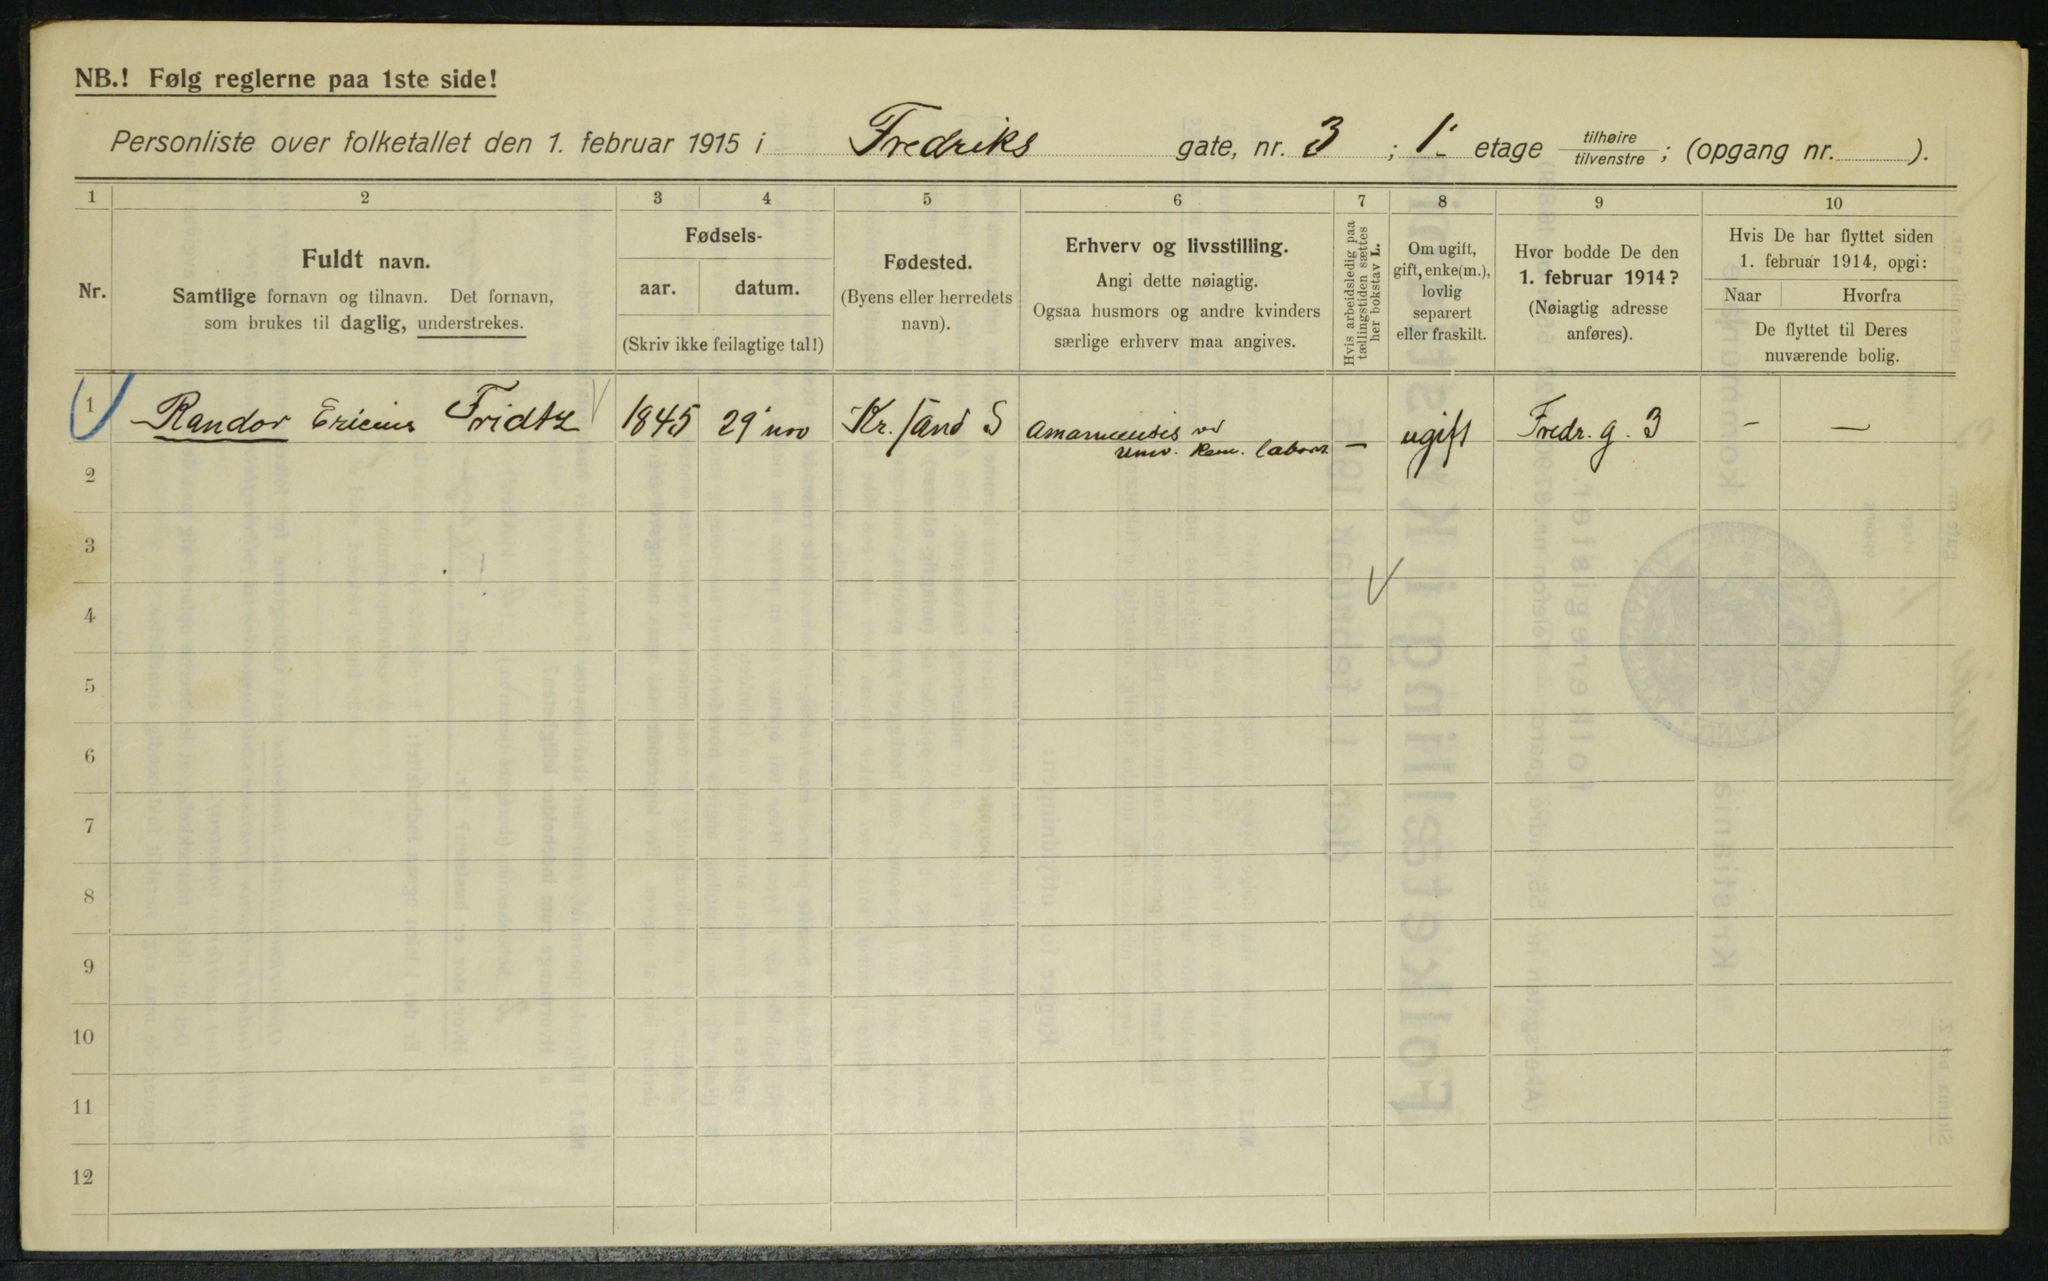 NB.! Følg reglerne paa 1ste side!
Personliste over folketallet den 1. februar 1915 i Fredriks gate, nr. 3 ; 1. etage tilhøire/tilvenstre ; (opgang nr. ).
1 2 3 4 5 6 7 8 9 10
Nr.
Fuldt navn.
Samtlige fornavn og tilnavn. Det fornavn,
som brukes til daglig, understrekes.
Fødsels-
aar. datum.
(Skriv ikke feilagtige tal!)
Fødested.
(Byens eller herredets
navn).
Erhverv og livsstilling.
Angi dette nøiagtig.
Ogsaa husmors og andre kvinders
særlige erhverv maa angives.
Hvis arbeidsledig paa
tællingstiden sættes
her bokstav L.
Om ugift,
gift, enke(m.),
lovlig
separert
eller fraskilt.
Hvor bodde De den
1. februar 1914?
(Nøiagtig adresse
anføres).
Hvis De har flyttet siden
1. februar 1914, opgi:
Naar Hvorfra
De flyttet til Deres
nuværende bolig.
1 Randor Ericius Fridtz 1845 29 nov Kr.sand S amanuensis vd — ugift Fredr. g. 3 — —
Univ. Kem. laborat.
2
3
4
5
6
7
8
9
10
11
12